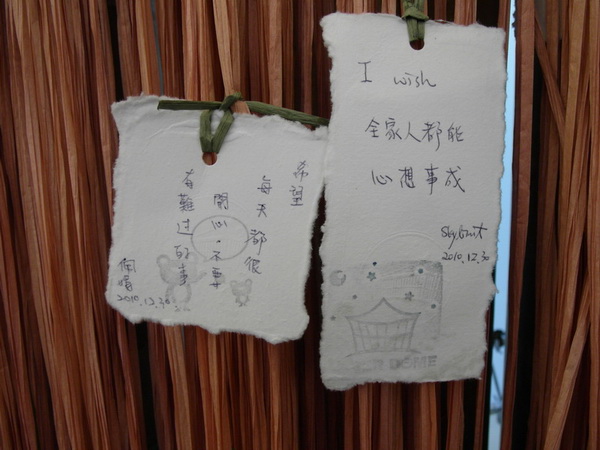 希望
每天都很
開心。不要
有難过的事
2010.12.30
I wish
全家人都能
心想事成
2010.12.30